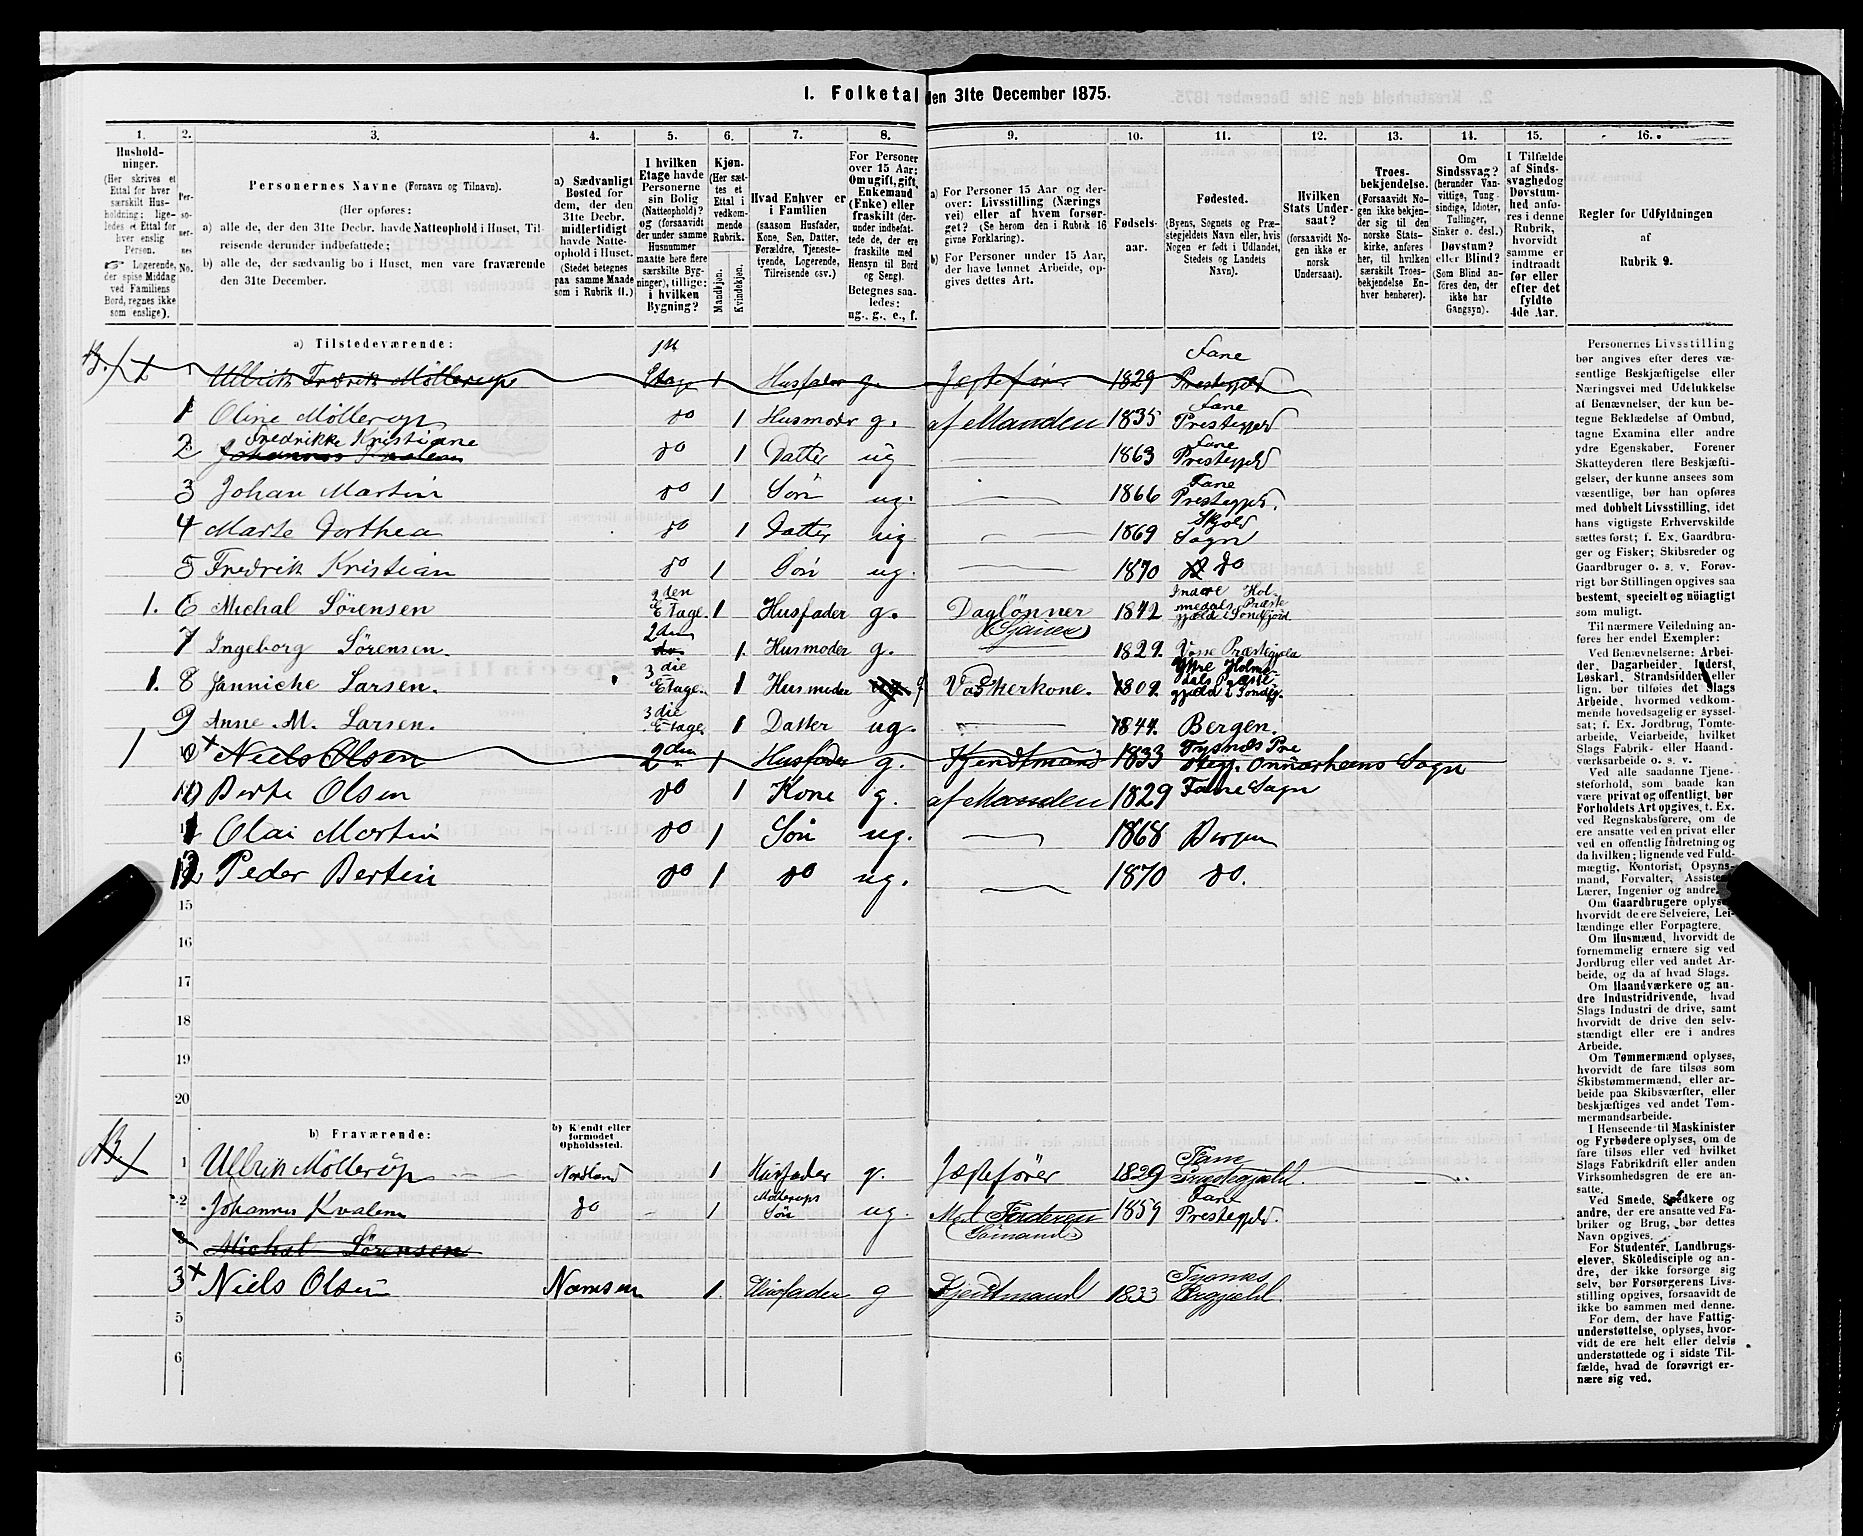 1. Folketal den 31te December 1875.
1. 2. 3. 4. 5. 6. 7. 8. 9. 10. 11. 12. 13. 14. 15. 16.
Hushold-
ninger.
(Her skrives et
Ettal for hver
særskilt Hus-
holdning; lige-
ledes et Ettal for
hver enslig
Person.
☞ Logerende,
der spise Middag
ved Familiens
Bord, regnes ikke
som enslige).
Per-
so-
ner-
nes
No.
Personernes Navne (Fornavn og Tilnavn).
(Her opføres:
a) alle de, der den 31te Decbr. havde Natteophold i Huset, Til-
reisende derunder indbefattede;
b) alle de, der sædvanlig bo i Huset, men vare fraværende
den 31te December.
a) Sædvanligt
Bosted for
dem, der den
31te Decbr.
midlertidigt
havde Natte-
ophold i Huset.
(Stedet betegnes
paa samme Maade
som i Rubrik 11.)
I hvilken
Etage havde
Personerne
sin Bolig
(Natteophold)?
og (forsaavidt
der under samme
Husnummer
maatte høre flere
særskilte Byg-
ninger), tillige:
i hvilken
Bygning?
Kjøn.
(Her sæt-
tes et
Ettal i
vedkom-
mende
Rubrik.
Mandkjøn.
Kvindekjøn.
Hvad Enhver er
i Familien
(saasom Husfader,
Kone, Søn, Datter,
Forældre, Tjeneste-
tyende, Logerende,
Tilreisende osv.)
For Personer
over 15 Aar:
Om ugift, gift,
Enkemand
(Enke) eller
fraskilt (der-
under indbefat-
tede de, der ere
fraskilte med
Hensyn til Bord
og Seng).
Betegnes saa-
ledes:
ug., g., e., f.
a) For Personer 15 Aar og der-
over: Livsstilling (Nærings
vei) eller af hvem forsør-
get? (Se herom den i Rubrik 16
givne Forklaring).
b) For Personer under 15 Aar,
der have lønnet Arbeide, op-
gives dettes Art.
Fødsels-
aar.
Fødested.
(Byens, Sognets og Præ-
stegjeldets Navn eller, hvis
Nogen er født i Udlandet,
Stedets og Landets
Navn).
Hvilken
Stats Under-
saat?
(forsaavidt No-
gen ikke er
norsk
Undersaat).
Troes-
bekjendelse.
(Forsaavidt No-
gen ikke bekjen-
der sig til den
norske Stats-
kirke, anføres
her, til hvilken
særskilt Troes-
bekjendelse En-
hver henhører).
Om
Sindssvag?
(herunder Van-
vittige, Tung-
sindige, Idioter,
Tullinger,
Sinker o. desl.)
Døvstum?
eller Blind?
(Som Blind an-
føres den, der
ikke har
Gangsyn).
I Tilfælde
af Sinds-
svaghed og
Døvstum-
hed anfø-
res i denne
Rubrik,
hvorvidt
samme er
indtraadt
før eller
efter det
fyldte
4de Aar.
Regler for Udfyldningen
af
Rubrik 9.
a) Tilstedeværende:
Ullrik Fredrik Møllerup 1ste Etage 1 Husfader g. Jægtefører 1829 Fane Prestegjeld
1 Oline Møllerup do 1 Husmoder g. af Manden 1835 Fane Prestegjeld
2 Johannes Kvalem Fredrikke Kristiane do 1 Datter ug 1863 Fane Prestegjeld
3 Johan Martin do 1 Søn ug. 1866 Fane Prestegjeld.
4 Marte Dorthea do 1 Datter ug 1869 Skjold Sogn
5 Fredrik Kristian do 1 Søn ug. 1870 do
1. 6 Michal Sørensen 2den Etage. 1 Husfader g. Daglønner (Sjauer) 1842 Indre Hol-
medals Præste
gjæld i Søndfjord
7 Ingeborg Sørensen. 2den do. 1. Husmoder g. 1829. Voss Præstegjeld
1. 8 Janniche Larsen. 3die Etage. 1 Husmoder Vaskerkone. 1809. Ytre Holme-
dals Præste-
gjæld i Søndfj.
9 Anne M. Larsen. 3die Etage. 1 Datter ug. 1844. Bergen.
1 Niels Olsen 2den 1 Husfader g. Kjendtmand 1833 Tysnæs Pre
stegj. Onnarheims Sogn
Berte Olsen do 1 Kone g. af Manden 1829 Fane Sogn
Olai Martin do 1 Søn ug. 1868 Bergen
Peder Bertin do 1 do ug. 1870 do.
15
16
17
18
19
20
b) Fraværende:
b) Kjendt eller
formodet
Opholdssted.
1 Ullrik Møllerup Nordland 1 Husfader g. Jægtefører 1829 Fane Prestegjæld.
2 Johannes Kvalem do 1 Møllerups Søn ug. Med Faderen (Sømand) 1859 Fane Prestegjeld.
Michal Sørensen
3 Niels Olsen Namsen 1. Husfader g Kjendtmand 1833 Tysnes Prgjæld.
5
6
Personernes Livsstilling
bør angives efter deres væ-
sentlige Beskjæftigelse eller
Næringsvei med Udelukkelse
af Benævnelser, der kun be-
tegne Beklædelse af Ombud,
tagne Examina eller andre
ydre Egenskaber. Forener
Skatteyderen flere Beskjæfti-
gelser, der kunne ansees som
væsentlige, bør han opføres
med dobbelt Livsstilling, idet
hans vigtigste Erhvervskilde
sættes først; f. Ex. Gaardbru-
ger og Fisker; Skibsreder og
Gaardbruger o. s. v. Forøv-
rigt bør Stillingen opgives saa
bestemt, specielt og nöiagtigt
som muligt.
Til nærmere Veiledning an-
føres her endel Exempler:
Ved Benævnelserne: Arbei-
der, Dagarbeider, Inderst,
Løskarl, Strandsidder eller
lign. bør tilføies det Slags
Arbeide, hvormed vedkom-
mende hovedsagelig er syssel-
sat; f. Ex. Jordbrug, Tomte-
arbeide, Veiarbeide, hvilket
Slags Fabrik- eller Haand-
værksarbeide o. s. v.
Ved alle saadanne Tjene-
steforhold, som baade kan
være privat og offentligt, bør
Forholdets Art opgives, t. Ex.
ved Regnskabsførere, om de
ere ansatte ved en privat eller
ved en offentlig Indretning og
da hvilken; lignende ved Fuld-
mægtig, Kontorist, Opsyns-
mand, Forvalter, Assistent,
Lærer, Ingeniør og andre.
Om Gaardbrugere oplyses,
hvorvidt de ere Selveiere, Lei-
lændinge eller Forpagtere.
Om Husmænd, hvorvidt de
fornemmelig ernære sig ved
Jordbrug eller ved andet Ar-
beide, og da af hvad Slags.
Om Haandværkere og an-
dre Industridrivende, hvad
Slags Industri de drive, samt
hvorvidt de drive den selv-
stændigt eller ere i andres
Arbeide.
Om Tømmermænd oplyses,
hvorvidt de fare tilsøs som
Skibstømmermænd, eller ar-
beide paa Skibsværfter, eller
beskjæftiges ved andet Tøm-
mermandsarbeide.
I Henseende til Maskinister
og Fyrbødere oplyses, om de
fare tilsøs eller ved hvilket
Slags Fabrikdrift eller anden
Virksomhedsgren de ere an-
satte.
Ved Smede, Snedkere og
andre, der ere ansatte ved Fa-
briker og Brug, bør dettes
Navn opgives.
For Studenter, Landbrugs-
elever, Skoledisciple og an-
dre, der ikke forsørge sig
selv, bør Forsørgerens Livs-
stilling opgives, forsaavidt de
ikke bo sammen med denne.
For dem, der have Fattig-
understøttelse, oplyses, hvor-
vidt de ere helt eller delvis
understøttede og i sidste Til-
fælde, hvad de forøvrigt er-
nære sig ved.